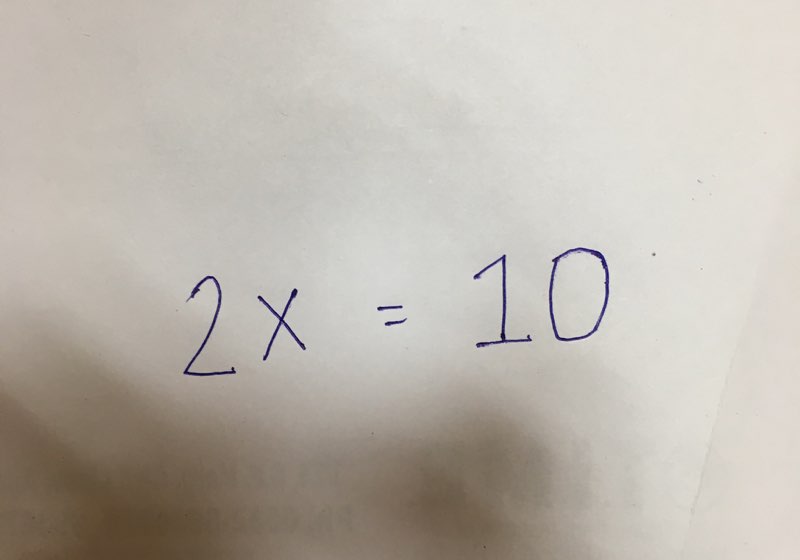 2x = 10